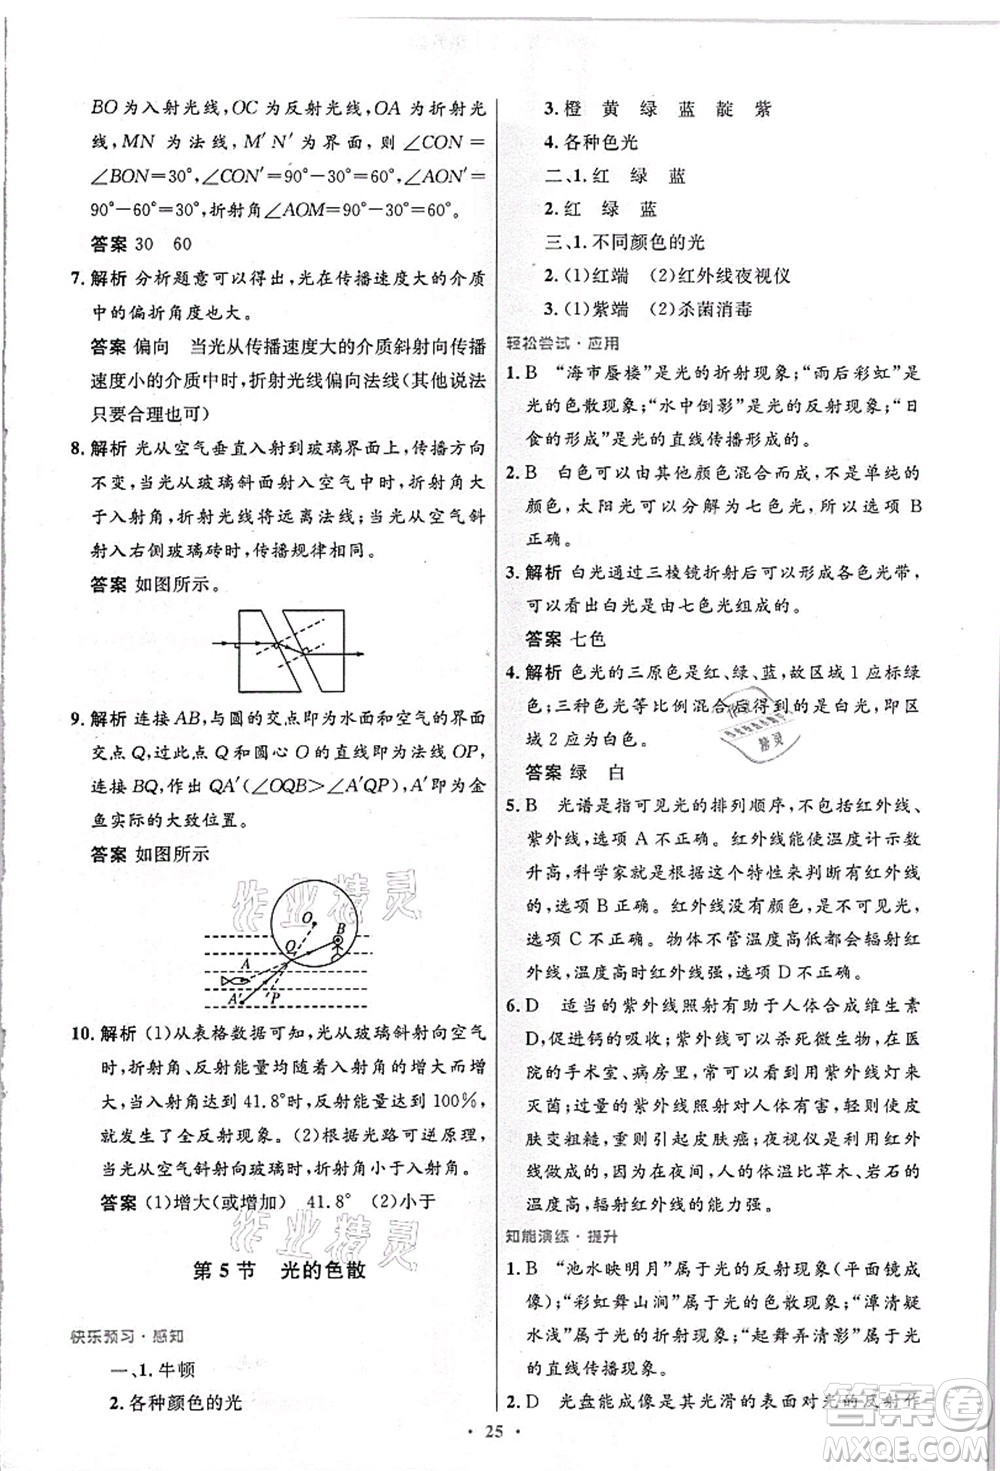 BO为入射光线,OC为反射光线,OA为折射光
线,MN 为法线,M′N′为界面,则∠CON=
∠BON=30°,∠CON′=90°-30°=60°,∠AON′=
90°-60°=30°,折射角∠AOM=90°-30°=60°。
答案 30 60
7. 解析 分析题意可以得出,光在传播速度大的介质
中的偏折角度也大。
答案 偏向 当光从传播速度大的介质斜射向传播
速度小的介质中时,折射光线偏向法线(其他说法
只要合理也可)
8. 解析 光从空气垂直入射到玻璃界面上,传播方向
不变,当光从玻璃斜面射入空气中时,折射角大于
入射角,折射光线将远离法线;当光从空气斜
射入右侧玻璃砖时,传播规律相同。
答案 如图所示。
9. 解析 连接AB,与圆的交点即为水面和空气的界面
交点Q,过此点Q和圆心O的直线即为法线OP,
连接BQ,作出QA′(∠OQB>∠A′QP),A′即为金
鱼实际的大致位置。
答案 如图所示
O
B
Q
A
A′
P
10. 解析 (1)从表格数据可知,光从玻璃斜射向空气
时,折射角、反射能量都随着入射角的增大而增
大,当入射角达到41.8°时,反射能量达到100%,
就发生了全反射现象。(2)根据光路可逆原理,
当光从空气斜射向玻璃时,不会发生全反射现象。
答案 (1)增大(或增加) 41.8° (2)小于
第5节 光的色散
快乐预习·感知
一、1. 牛顿
2. 各种颜色的光
3. 橙 黄 绿 蓝 靛 紫
4. 各种色光
二、1. 红 绿 蓝
2. 红 绿 蓝
三、1. 不同颜色的光
2. (1)红端 (2)红外线夜视仪
3. (1)紫端 (2)杀菌消毒
轻松尝试·应用
1. B “海市蜃楼”是光的折射现象;“雨后彩虹”是
光的色散现象;“水中倒影”是光的反射现象;“日
食的形成”是光的直线传播形成的。
2. B 白色可以由其他颜色混合而成,不是单纯的
颜色,太阳光可以分解为七色光,所以选项 B
正确。
3. 解析 白光通过三棱镜折射后可以形成各色光带,
可以看出白光是由七色光组成的。
答案 七色
4. 解析 色光的三原色是红、绿、蓝,故区域1应标绿
色;三种色光等比例混合后得到的是白光,即区
域2应为白色。
答案 绿 白
5. B 光谱是指可见光的排列顺序,不包括红外线、
紫外线,选项 A 不正确。红外线能使温度计示数
升高,科学家就是根据这一结论来判断有红外线
的,选项B正确。红外线没有颜色,是不可见光,
选项 C 不正确。物体不管温度高低都会辐射红
外线,温度高时红外线强,选项D不正确。
6. D 适当的紫外线照射有助于人体合成维生素
D,促进钙的吸收;紫外线能杀死微生物,在医
院的手术室、病房里,常可以看到用紫外线灯来
灭菌;过量的紫外线照射对人体有害,轻则使皮
肤变粗糙,重则引起皮肤癌;夜视仪是用红外
线做成的,因为在夜间,人的体温比草木、岩石的
温度高,辐射红外线的能力强。
知能演练·提升
1. B “池水映明月”属于光的反射现象(平面镜成
像);“彩虹舞山涧”属于光的色散现象;“潭清疑
水浅”属于光的折射现象;“起舞弄清影”属于光
的直线传播现象。
2. D 光盘能成像是其光滑的表面对光的反射作
• 25 •
作业精灵
作业精灵
答案卷
MXQE.COM